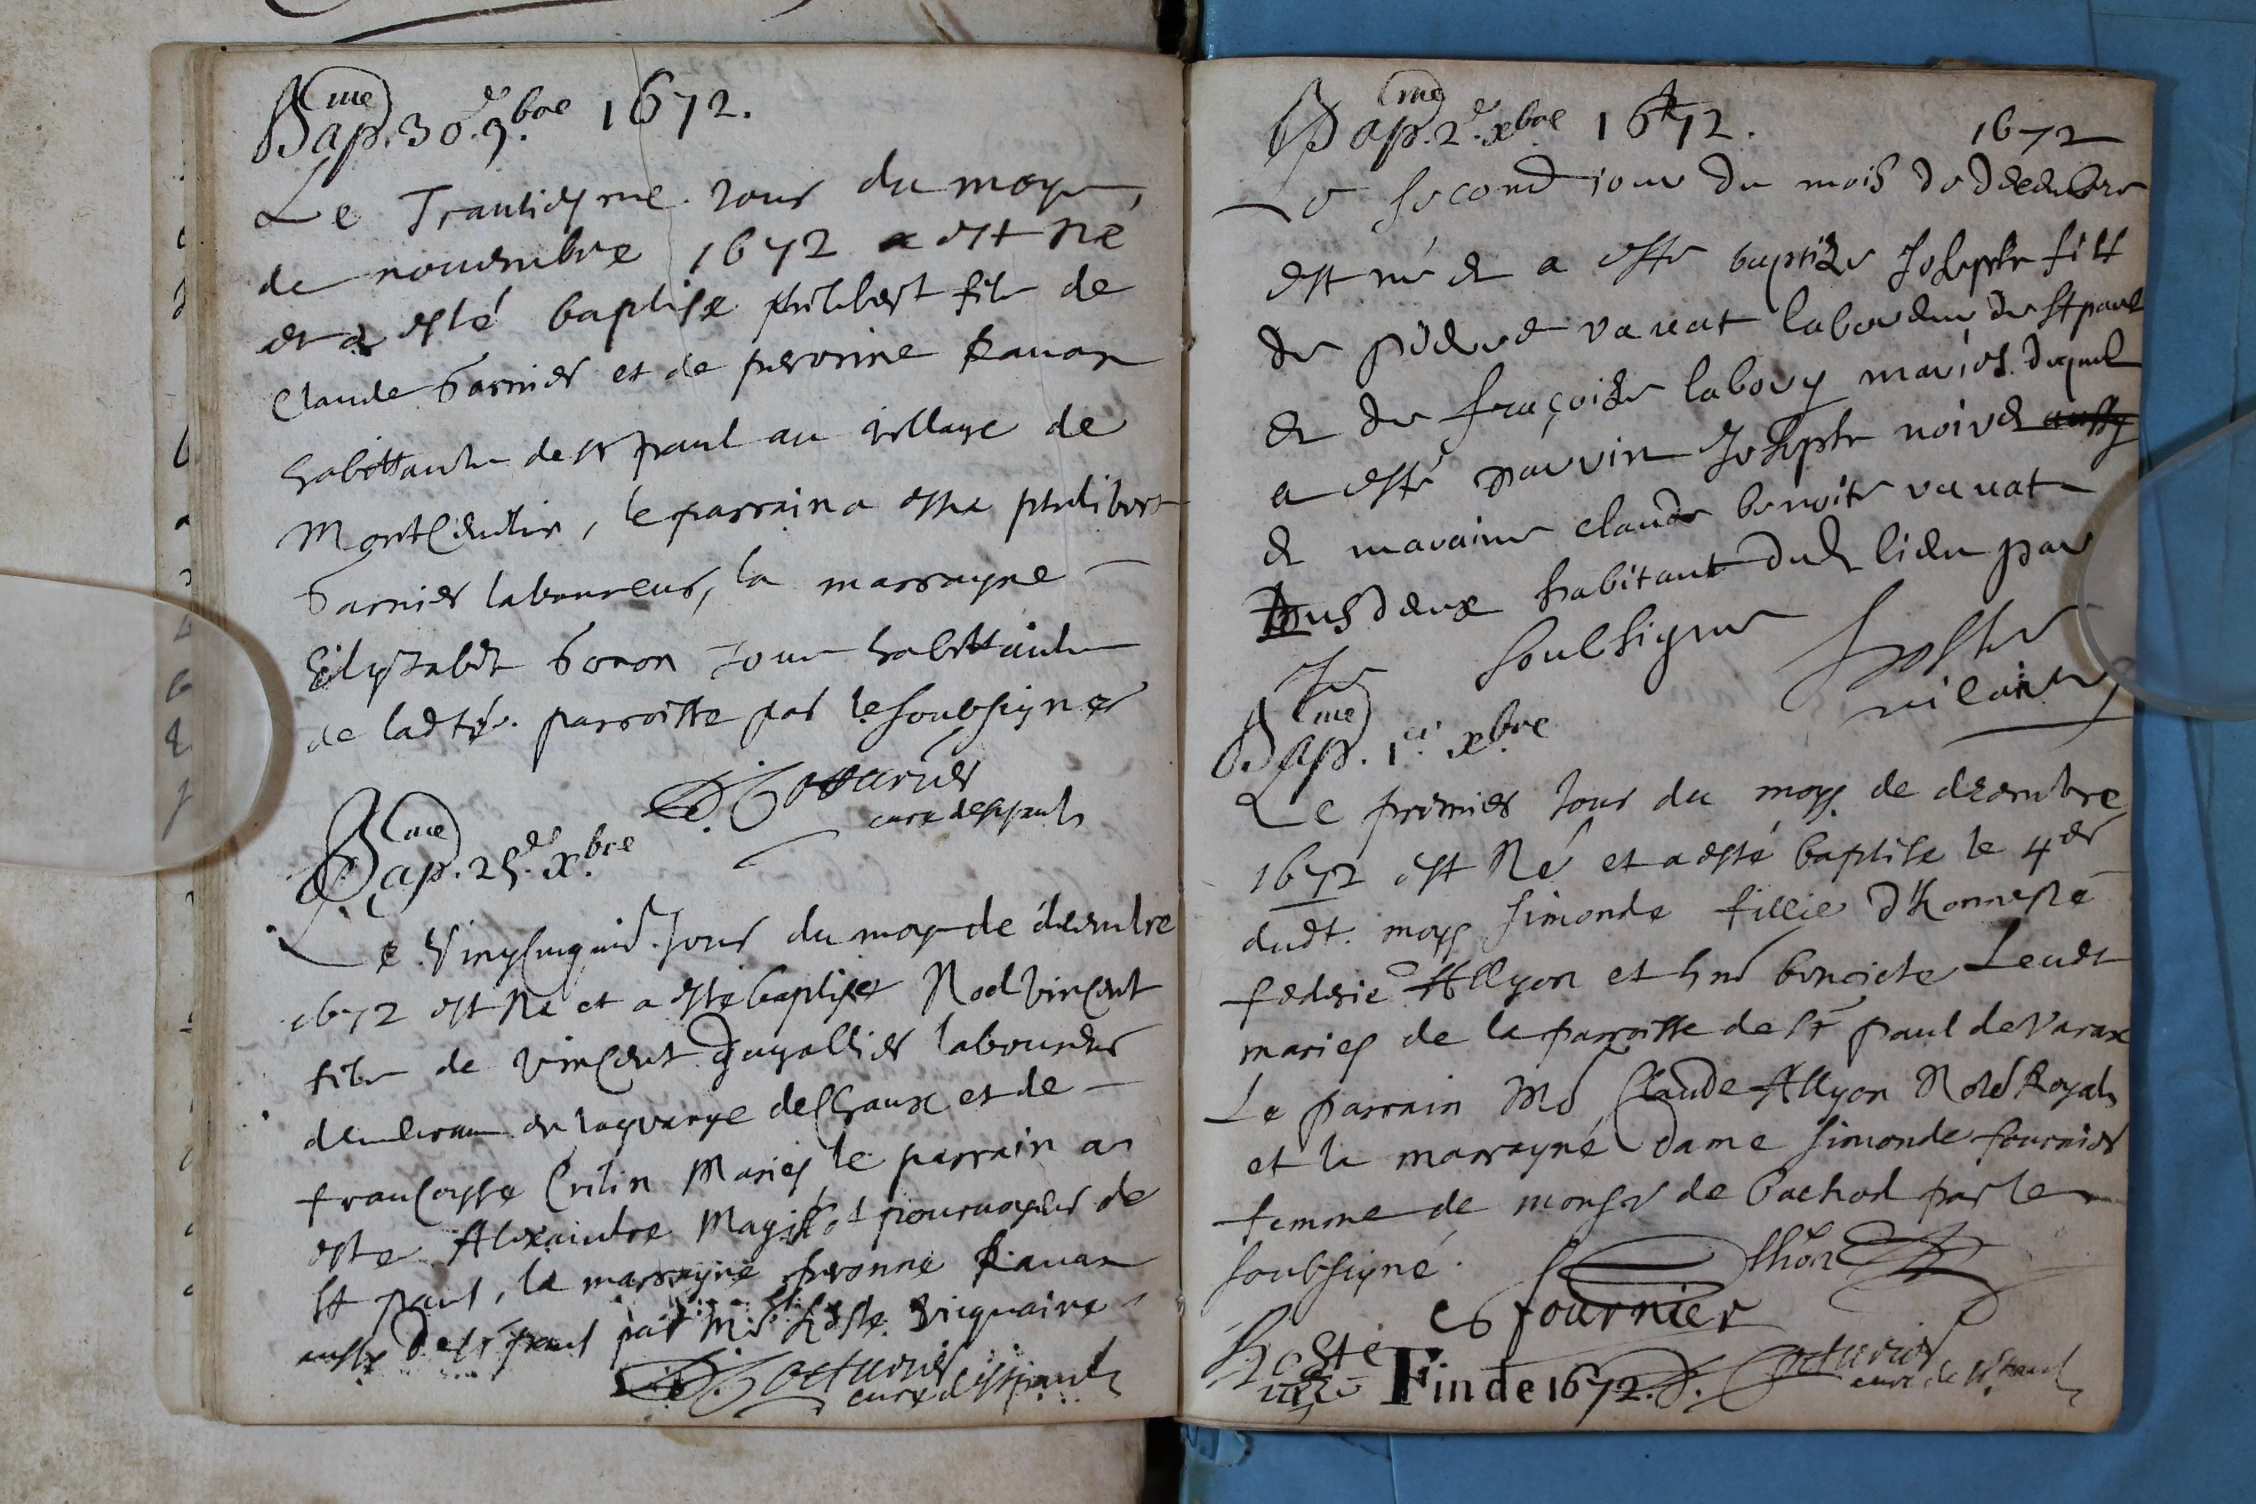 Bap.me 30.e 9.bre 1672.
Le Trantiesme Jour du moys
de nouembre 1672 a est Né
et a esté baptise philibert fils de
Claude Garnier et de peronne Rauan
habittants de st paul au village de
le parrain a este philibert
Garnier laboureur, la marrayne
Elysabet Goron tous habittants
de ladte. parroisse par le soubsigner
curé de st paul
Bap.me 25.e x.bre
Le Vingcinquie. Jour du moys de decembre
1672 est Né et a esté baptiser Noel Vincent
fils de Vincent laboureur
demeurant en la grange de et de
françoysse Mariés le parrain a
este Alexaindre pouruoyeur de
st paul, la marrayne peronne Rauan
aussy de st paul par Mre hoste vicquaire
curé de st paul
Bap.me 2.e xbre 1672. 1672
Le second iour du mois de decembre
est né et a este baptize Joseph fils
de pierre vauat laboureur de st paul
et de fraçoize labory mariés. duquel
a esté parrin Joseph noiret aussy
et maraine claude benoite vauat
tous deux habitant dud lieu par
Je soubsigne hoste
vicaire
Bap.me 1.er x.bre
Le premier Jour du moys de decembre
1672 est Né et a esté baptise le 4er
dudt. moys simonde fillie d'honneste
federic Allyon et benoicte
maries de la parroisse de st paul de Varax
Le parrain Me Claude Allyon Nore Royal
et la marrayne Dame simonde fournier
femme de monsr de Bachod par le
soubsigné.
fournier
hoste
vicre Fin de 1672.
curé de st paul